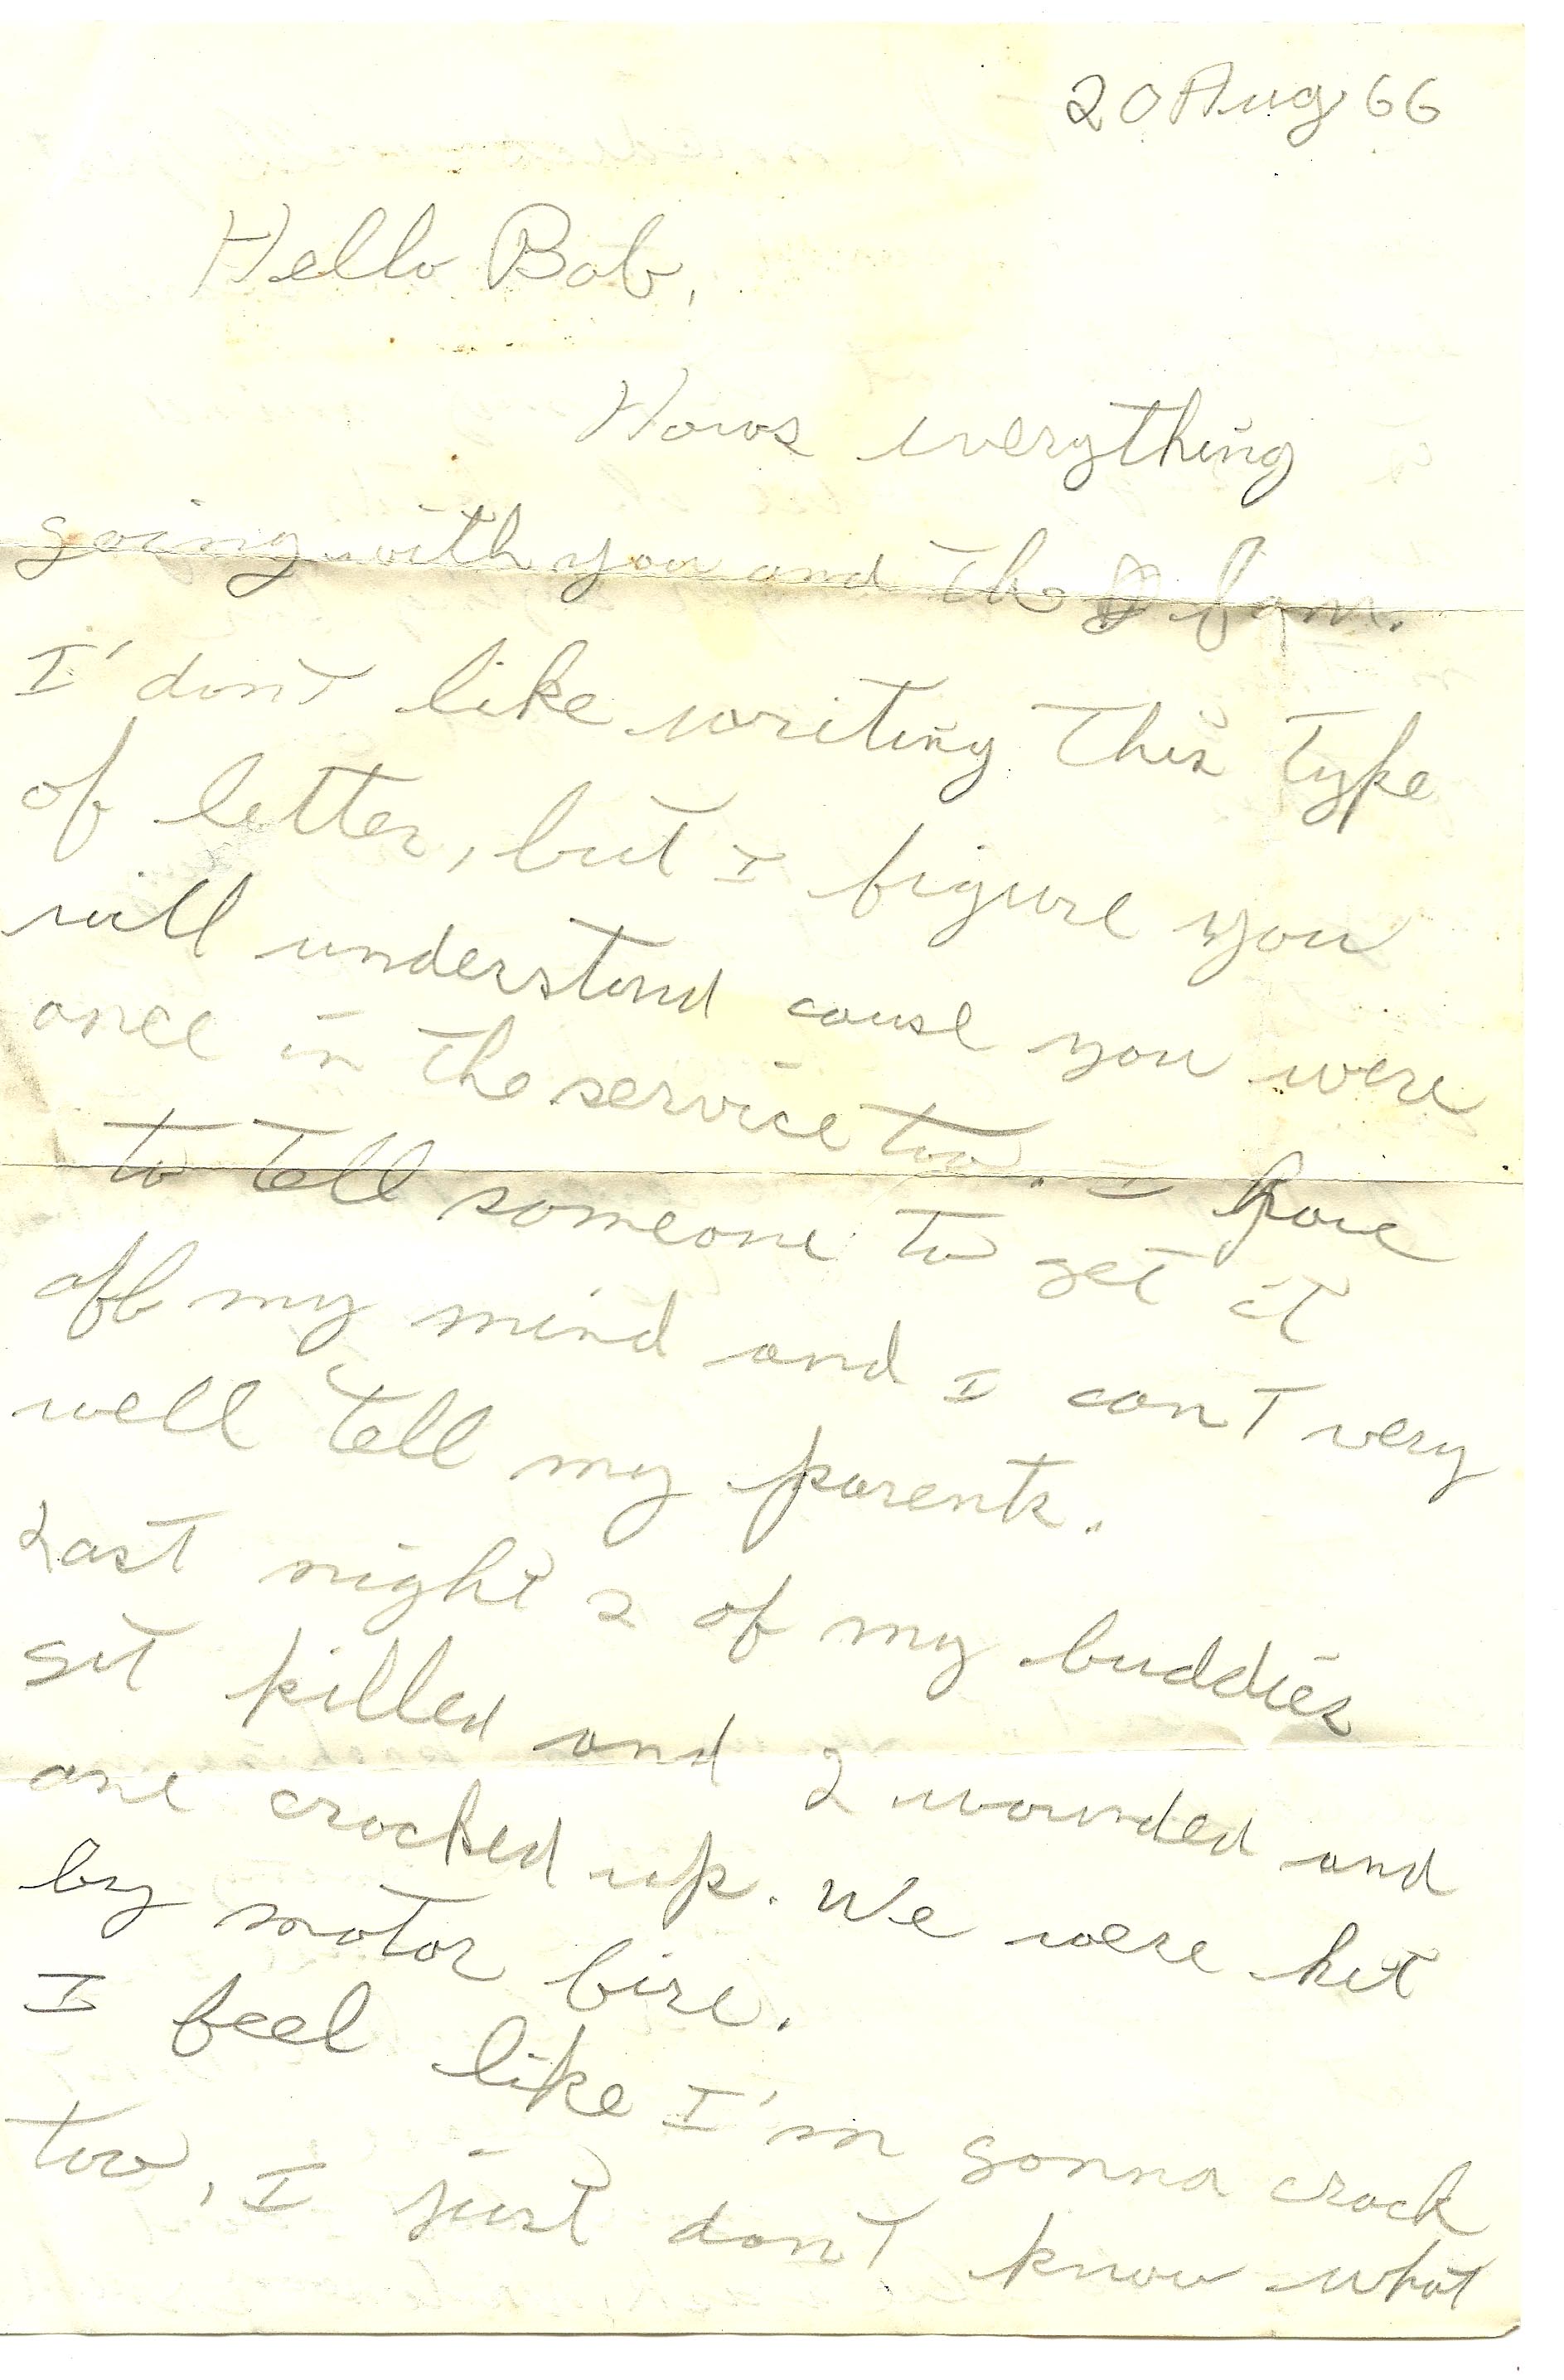 20 Aug 66
Hello Bob,
Hows everything
going with you and the fam.
I' dont like writing this type
of letter, but I figure you
will understand cause you were
once in the service too. I have
to tell someone to get it
off my mind and I can't very
well tell my parents.
Last night 2 of my buddies
got killed and 2 wounded and
one cracked up. We were hit
by motor fire.
I feel like I'm gonna crack
too, I just don't know what